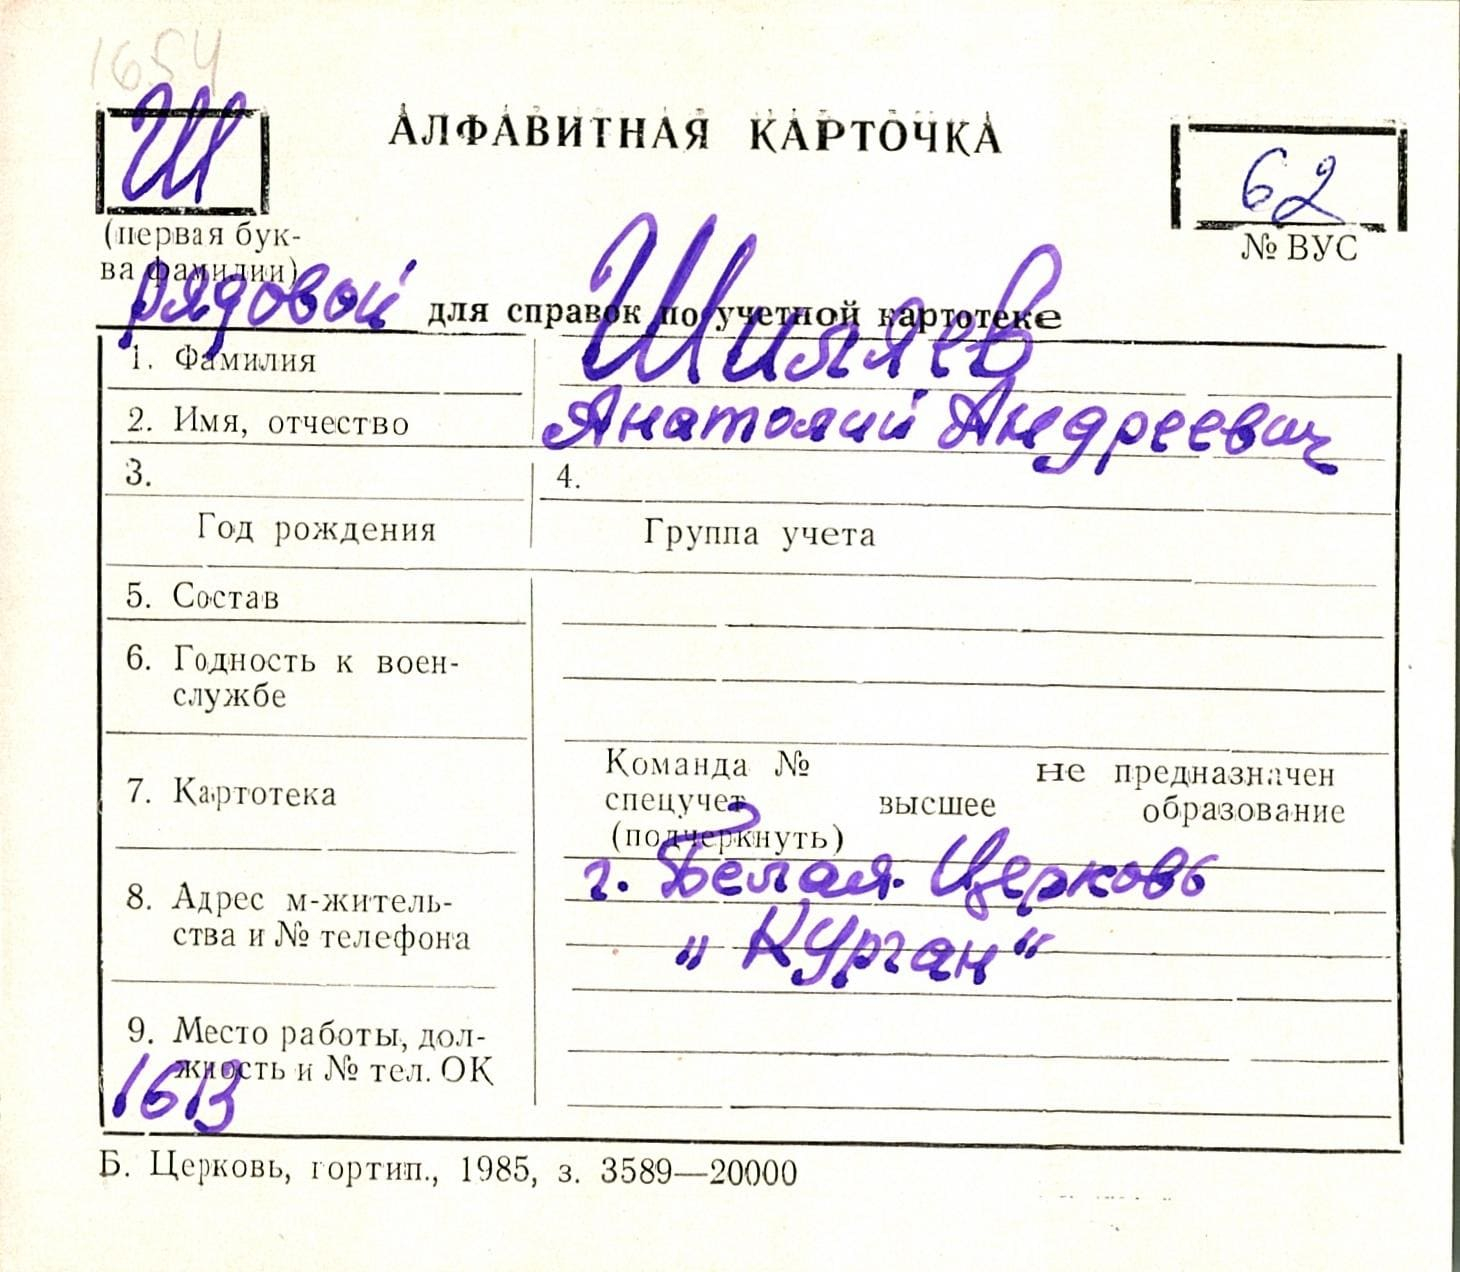 1654
Ш
АЛФАВИТНАЯ КАРТОЧКА
62
(первая бук-
ва фамилии)
№ ВУС
рядовой
для справок по учетной картотеке
1. Фамилия
Шиляев
2. Имя, отчество
Анатолий Андреевич
3.
4.
Год рождения
Группа учета
5. Состав
6. Годность к воен-
службе
7. Картотека
Команда № не предназначен
спецучет высшее образование
(подчеркнуть)
8. Адрес м-житель-
ства и № телефона
г. Белая Церковь
„Курган“
9. Место работы, дол-
жность и № тел. ОК
Б. Церковь, гортип., 1985, з. 3589—20000